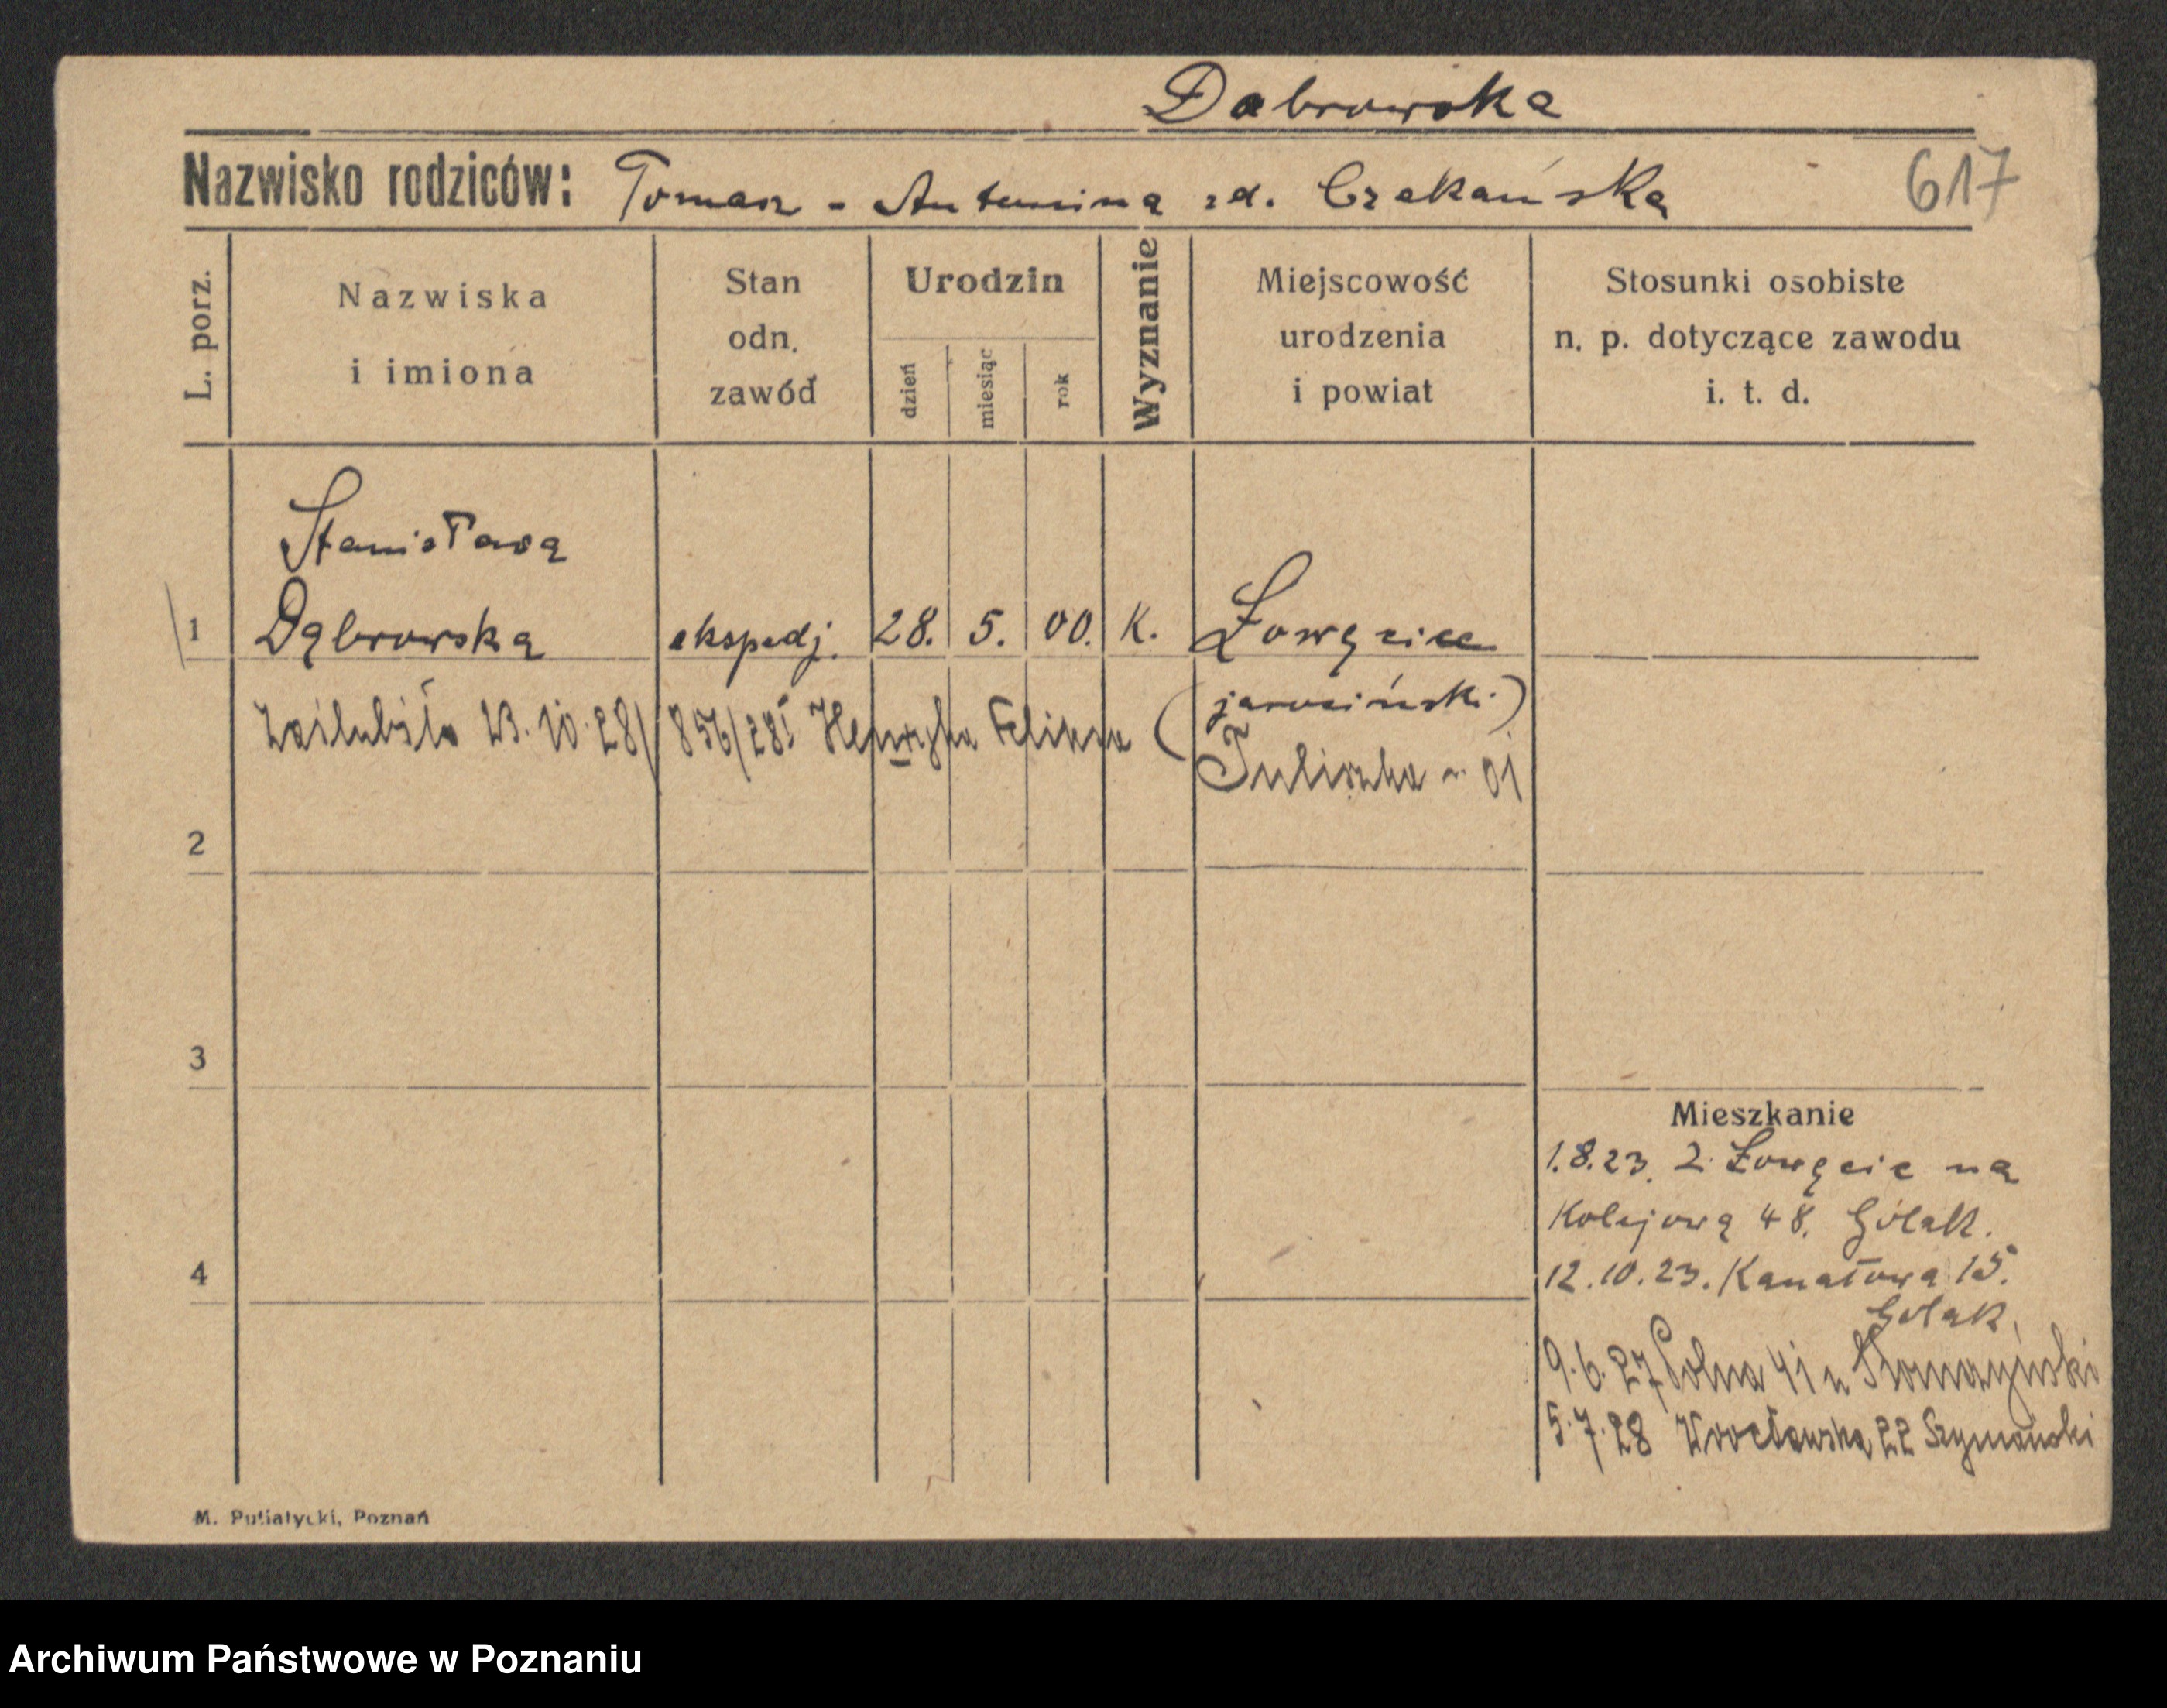 Dabrowska
Nazwisko rodziców: Tomasz - Antonina zd. Czekańska 617
L. porz.
Nazwiska i imiona
Stan odn. zawód
Urodzin
dzień miesiąc rok
Wyznanie
Miejscowość urodzenia i powiat
Stosunki osobiste n. p. dotyczące zawodu i. t. d.
Stanisława
1 Dąbrowska ekspedj. 28. 5. 00. K. Łowęcice
(jarociński)
23.10.28 / 856/28 Henryka Feliksa
Tuliszka - 01
2
3
Mieszkanie
1.8.23. z Łowęcic na
Kolejową 48.
12.10.23. Kanałowa 15.
4
9.6.27 Polna 41 u
5.7.28 Wrocławska 22 Szymański
M. Putiatycki, Poznań
Archiwum Państwowe w Poznaniu